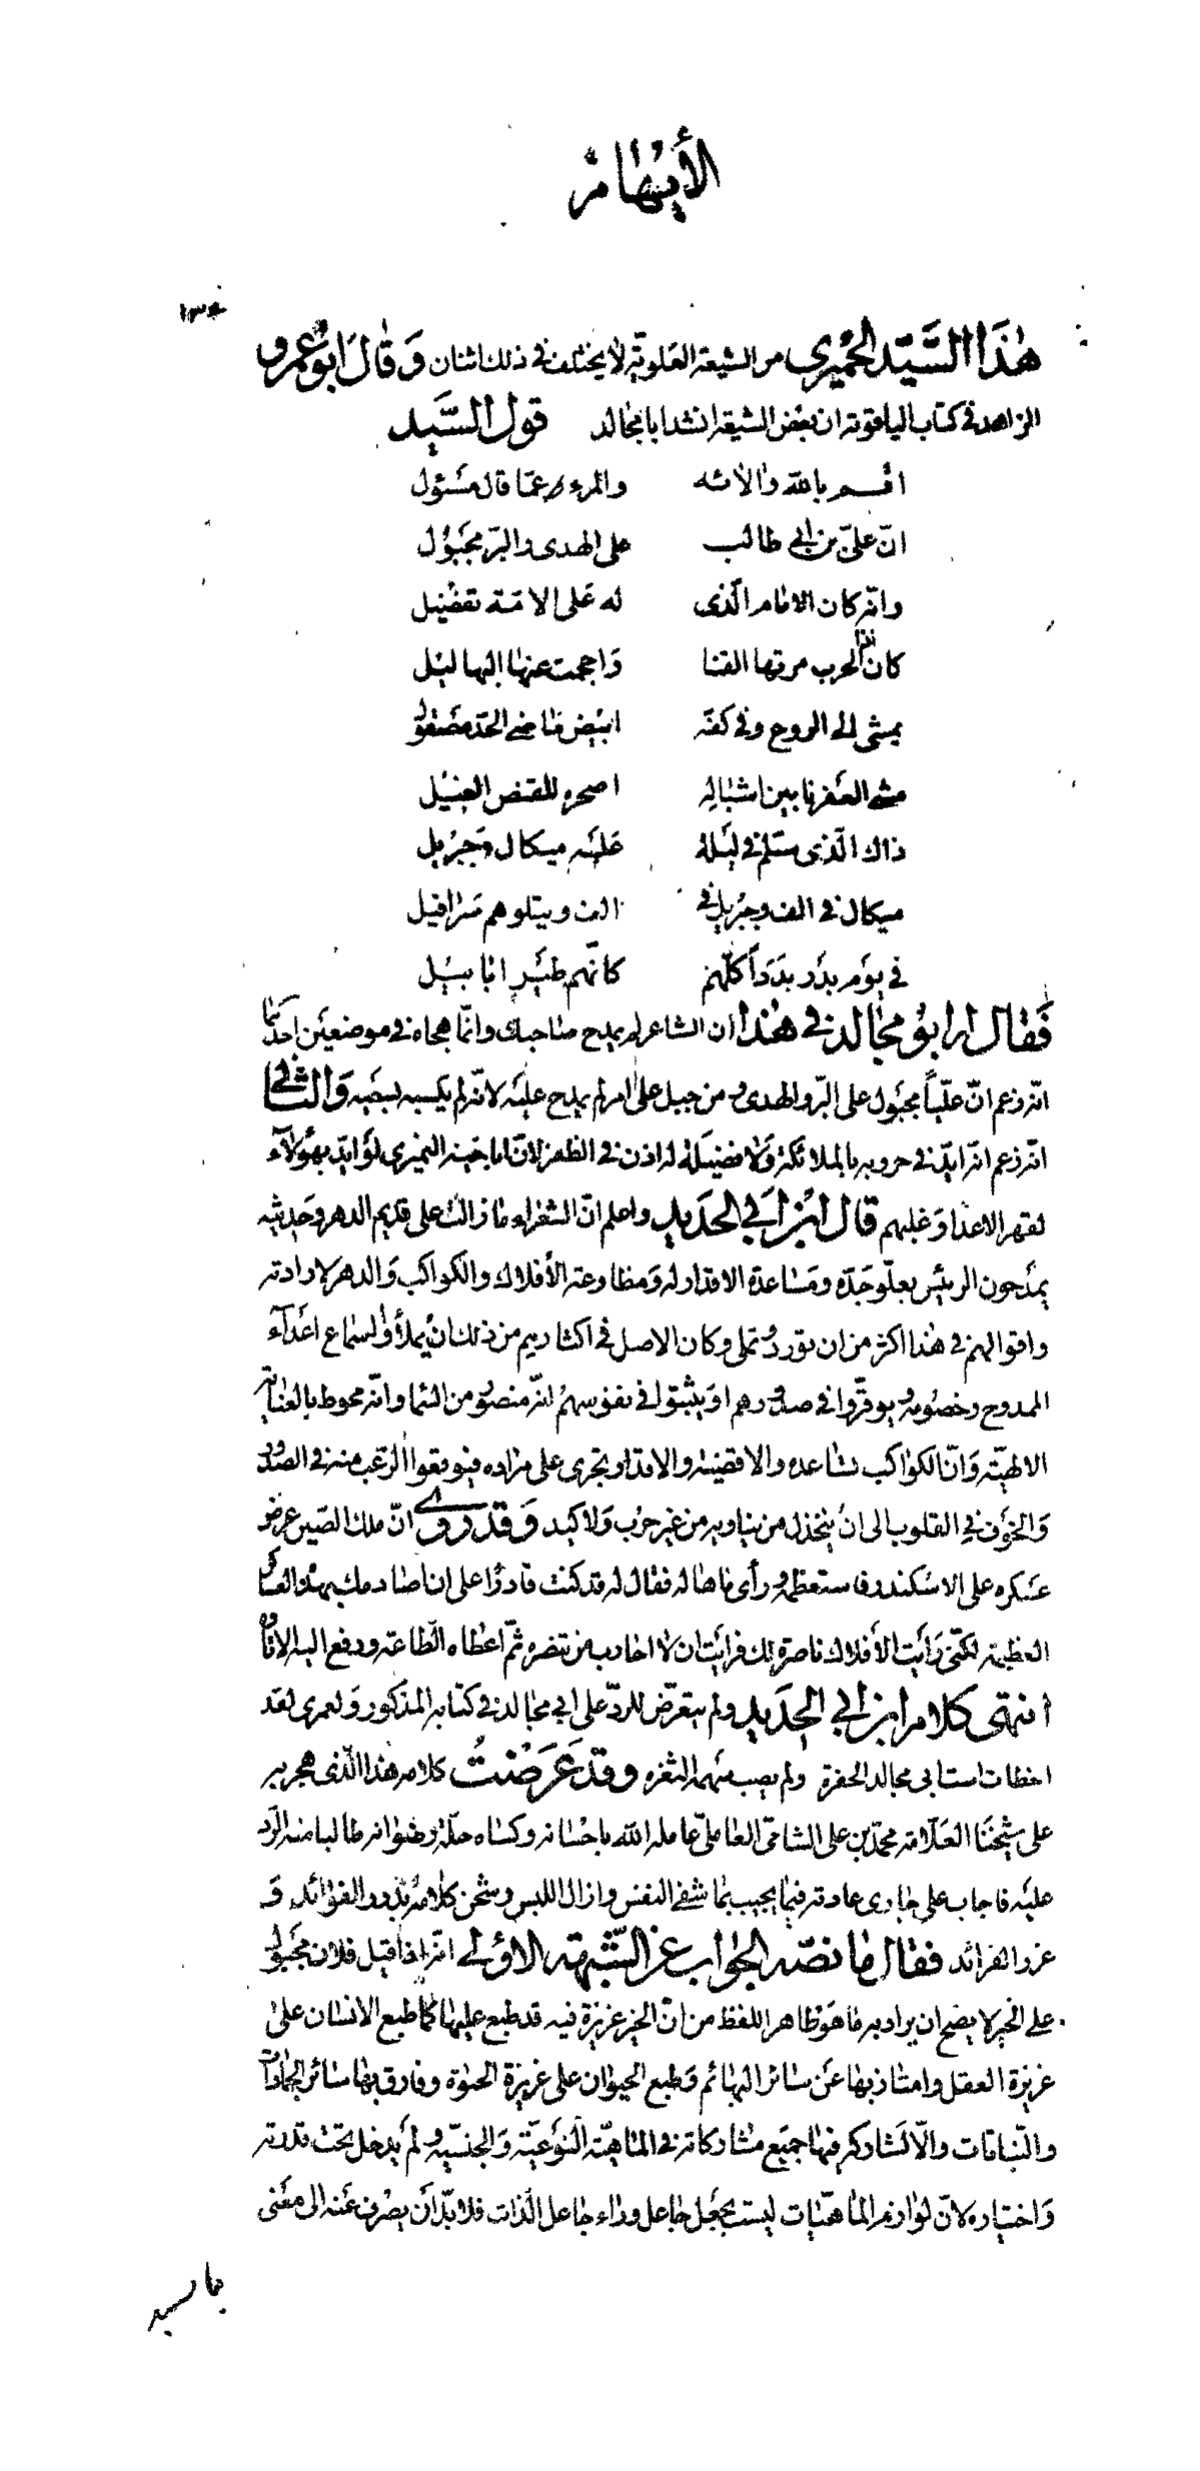 الأيهام
١٣٤
هٰذَا السَّيّد الحِمْيَري من الشيعة العَلويّة لا يختلف فى ذلك اثنان وَقٰالَ ابُو عَمرو
الزاهد فى كتاب الياقوتة ان بعض الشيعة انشد ابا مجالد قول السَّيد
اقسم بالله وآلائه والمرء عمّا قال مَسْئول
انّ علىّ بن ابى طالب على الهدى والبرّ مجبُول
وانّه كان الامام الّذى له عَلى الامّة تفضيل
كان اذا الحرب مرتها القنا وَاحجمت عنها البهاليل
يمشى الى الروع وفى كفّه ابيض مٰاضى الحدّ مصقول
مشى العفرنا بين اشبالهِ اصحره للقنص الغيل
ذاك الّذى سلّم فى ليلة عليه ميكال وجبريل
ميكال فى الف وجبريل فى الف ويتلوهم سَرافيل
فى يوم بدر بدَداً كلّهم كانّهم طير ابابيل
فَقال ابو مجٰالد فى هٰذا ان الشاعر لم يمدح صاحبك وانّما هجاه فى موضعين احدهما
انّه زعم انّ عليّاً مجبول على البرّ والهدى ومن جبل على امر لم يمدح عليه لانّه لم يكسبه بسعيه وَالثّانى
انّه زعم انّه ايّد فى حروبه بالملائكة وَلا فضيلة له اذن فى الظفر لانّ ابا حية النميرى لو ايّد بهؤلآء
لقهر الاعدا وغلبهم قال ابن ابَى الحَديد واعلم انّ الشعراء ما زالت على قديم الدهر وحديثه
يمدحون الرئيس بعلوّ جَدّه ومسَاعدة الاقدار له ومطاوعة الأفلاك والكواكب وَالدهر لارادته
واقوالهم فى هٰذا اكثر من ان تورد وتملى وكان الاصل فى اكثارهم من ذلك انْ يملأوا اسماع اعدآء
الممدوح وخصومه ويوقّروا فى صدورهم اوَ يثبتوا فى نفوسهمْ انّه منصور من السّما وانّه محوط بالعناية
الالهيّة وَانّ الكواكب تسٰاعده والاقضية والاقدار تجرى على مراده فيوقعوا الرّعب منه فى الصّدور
وَالخوف فى القلوب الى انْ ينخذل من يناويه من غير حرْب وَلا كيد وَقد رُوى انّ ملك الصّين عرض
عسكره على الاسكندر فاستعظمه ورأى ما هاله فقال له قد كنت قادرًا على ان اصادمك بهذه العساكر
العظيمة لكنّى رَأيت الأفلاك ناصرة لك فرأيت ان لا احارب من تنصره ثمّ اعطاه الطّاعة ودفع اليه الاتاوة
انتهى كلام ابن ابى الحَديد ولم يتعرّض للردّ على ابى مجالد فى كتابه المذكور وَلعمرى لقد
اخطات است ابى مجالد الحفرة ولم يصب سهمه الثغره وقد عَرَضْتُ كلامه هٰذا الّذى هجر به
على شيخنَا العَلّامة محمّد بن على الشامىّ العٰاملىّ عامله الله باحسانه وكسٰاه حلّة رضوانه طالبا منه الرّد
عليه فاجاب على جٰارى عادته فيما يجيب بمٰا شفى النفس وازال اللبس وشحن كلامه بدرر الفوائد وَ
غرر الفرائد فقال مٰا نصّه الجواب عن الشّبهة الاؤلى انّه اذا قيل فلان مجبُول
على الخير لا يصح ان يراد به مٰا هوَ ظاهر اللفظ من انّ الخير غريزة فيه قد طبع عليهٰا كما طبع الانسان على
غريزة العقل وامتاز بهٰا عَن سٰائر البهائم وَطبع الحيوان على غريزة الحيوٰة وفارق بها سٰائر الجمادات
والنّباتات والّا لشاركه فيهٰا جميع مشاركاته فى المٰاهيّة النوعيّة وَالجنسيّة ولم يدخل تحت قدرته
وَاختياره لانّ لوازم المٰاهيّات ليست بجعل جٰاعل ورٰاء جاعل الذات فلا بدّ أن يصْرف عَنه الى معْنى